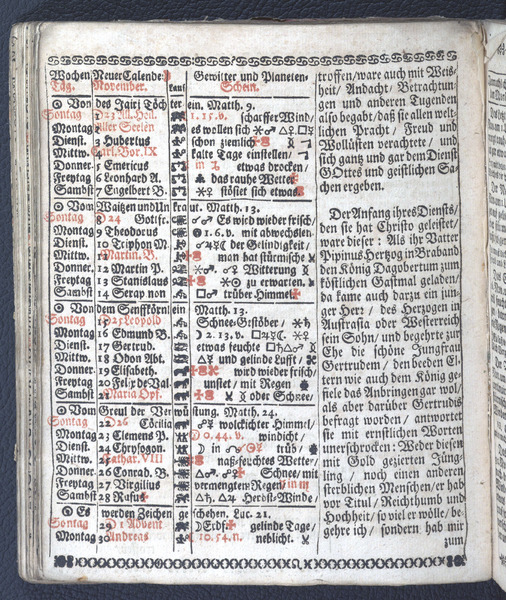 Wochen Neuer Calender
Tag. November. lauf
Gewitter und Planeten-
Schein.
Von des Jairi Töchterlein. Matth. 9.
Sontag D23 All. Heil. 1. 15. v. scharffer Wind/
Montag 2 Aller Seelen es wollen sich
Dienst. 3 Hubertus schon ziemlich
Mittw. Carl. Bor. IX kalte Tage einstellen/
Donner. 5 Emericus etwas trocken/
Freytag 6 Leonhard A. das rauhe Wetter
Sambst 7 Engelbert B. stösset sich etwas.
Vom Waitzen und Unkraut. Matth. 13.
Sontag D 24 Gottfr. Es wird wieder frisch/
Montag 9 Theodorus 1. 6. v. mit abwechslen-
Dienst. 10 Triphon M. der Gelindigkeit/
Mittw. Martin. B. man hat stürmische
Donner. 12 Martin P. Witterung
Freytag 13 Stanislaus zu erwarten.
Sambst 14 Serapyon trüber Himmel
Von dem Senffkörnlein Matth. 13.
Sontag D25 Leopold Schnee-Gestöber/
Montag 16 Edmund B. 2. 13. v.
Dienst. 17 Gertrud. etwas feuchte
Mittw. 18 Odon Abt. und gelinde Lufft/
Donner. 19 Elisabeth. wird wieder frisch/
Freytag 20 Felix de Val. unstet/ mit Regen
Sambst Maria Opf. oder Schnee
Von Greul der Verwüstung. Matth. 24.
Sontag 22 D26 Cöcilia wolckichter Himmel/
Montag 23 Clemens P. 0. 44. v. windicht/
Dienst. 24 Chrysogon. in trüb/
Mittw. Cathar. VIII naß-feuchtes Wetter/
Donner. 26 Conrad. B. Schnee mit
Freytag 27 Virgilius vermengtem Regen
Sambst 28 Rufus Herbst-Winde/
Es werden Zeichen geschehen. Luc. 21.
Sontag 29 1 Advent Erdf. gelinde Tage/
Montag Andreas 10. 54. n. neblicht.
troffen/ ware auch mit Weis-
heit/ Andacht/ Betrachtun-
gen und anderen Tugenden
also begabt/ daß sie allen welt-
lichen Pracht/ Freud und
Wollüsten verachtete/ und
sich gantz und gar dem Dienst
GOttes und geistlichen Sa-
chen ergeben.
Der Anfang ihres Diensts/
den sie hat Christo geleistet/
ware dieser: Als ihr Vatter
Pipinus Hertzog in Braband
den König Dagobertum zum
köstlichen Gastmal geladen/
da kame auch darzu ein jun-
ger Herr/ des Hertzogen in
Austrasia oder Westerreich
sein Sohn/ und begehrte zur
Ehe die schöne Jungfrau
Gertrudem/ den beeden El-
tern wie auch dem König ge-
fiele das Anbringen gar wol/
als aber darüber Gertrudis
befragt worden/ antwortet
sie mit ernstlichen Worten
unerschrocken: Weder diesen
mit Gold gezierten Jüng-
ling/ noch einen andern
sterblichen Menschen/ er hab
vor Titul/ Reichthumb und
Hochheit/ so viel er wölle/ be-
gehre ich/ sondern hab mir
zum